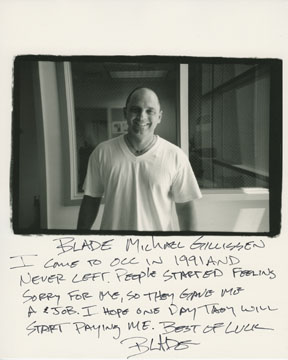 BLADE MICHAEL GILLISSEN
I COME TO OCC IN 1991 AND
NEVER LEFT. PEOPLE STARTED FEELING
SORRY FOR ME, SO THEY GAVE ME
A JOB. I HOPE ONE DAY THEY WILL
START PAYING ME. BEST OF LUCK
BLADE